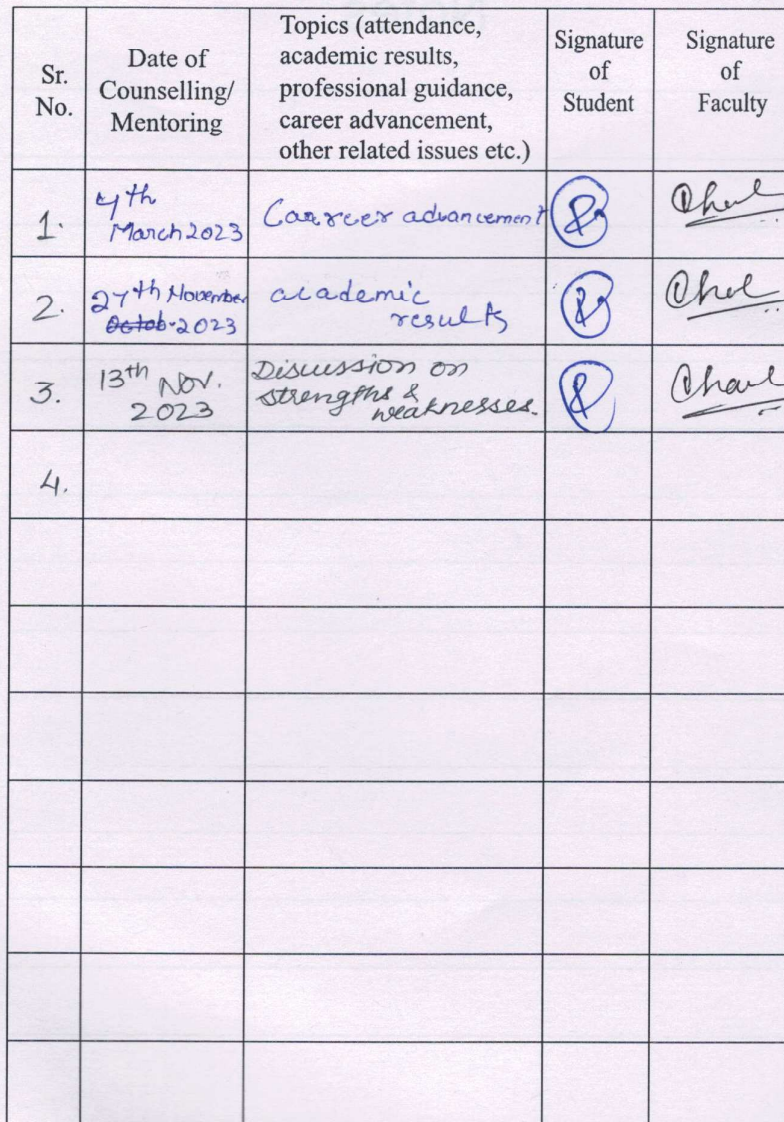 Sr.
No.
Date of
Counselling/
Mentoring
Topics (attendance,
academic results,
professional guidance,
career advancement,
other related issues etc.)
Signature
of
Student
Signature
of
Faculty
1.
4th
March 2023
Carreer advancement
2.
24th November
Octob. 2023
academic
results
3.
13th Nov.
2023
Discussion on
strengths &
weaknesses.
4.